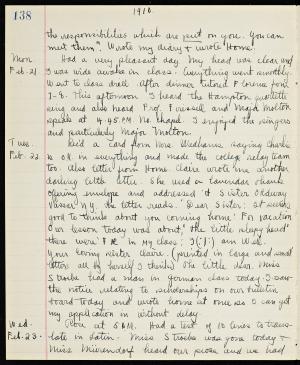 138
1916.
the responsibilities which are put on you. You can
meet them." Wrote my diary & wrote Home.
Mon. Had a very pleasant day. My head was clear and
Feb. 21 I was wide awake in class. Everything went smoothly.
Went to class drill. After dinner tutored
This afternoon, I heard the Hampton quartette
sing and also heard Prof. and Major Moton
speak at 4:45 P.M. No chapel. I enjoyed the singers
and particularly Major Moton.
Tues. Rec'd a card from Mrs. Williams saying Charlie
Feb. 22 is O.K. in everything and made the college relay team
too. Also letter from Home. Claire wrote me another
darling little letter. She used a lavender
envelope and addressed it Sister
Vassar N.Y. the letter reads: "Dear Sister: It seems
good to think about you coming home for vacation
Our lesson today was about "the little sleepy head"
there were in my class; I
Your loving sister Claire. (printed in large and small
letters all by herself I think) The little dear. Miss
Stroebe had a man in German class today. I saw
the notice relating to scholarships on our bulletin
board today and wrote home at once so I can get
my application in without delay.
Wed. Rose at 5 A.M. Had a test of 10 lines to trans-
Feb. 23. late in Latin. Miss Stroebe was gone today &
Miss heard our prose and we had